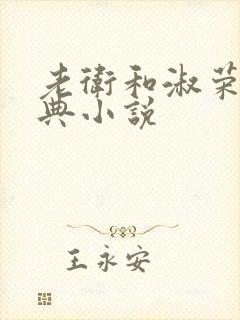 老衛和淑荣
典小說
王永安